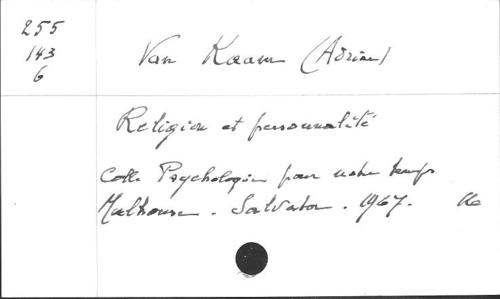 255
143
6
Van Kaam (Adrian)
Religion et personnalité
Coll. Psychologie pour notre temps
Mulhouse. Salvator. 1967.